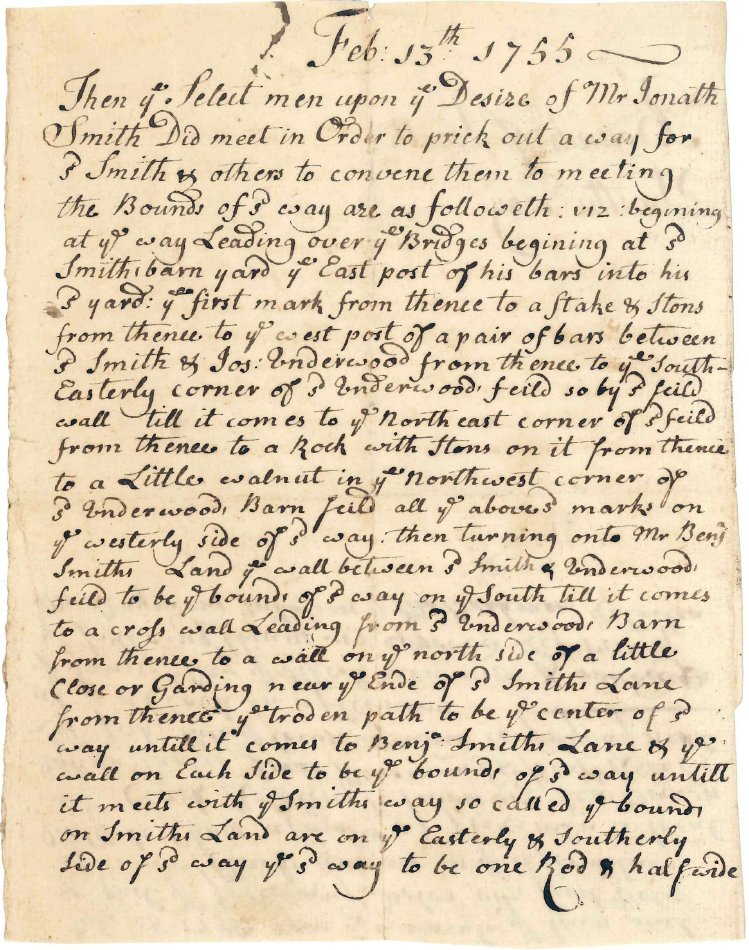 Feb: 13th 1755
Then ye Select men upon ye Desire of Mr Jonath
Smith Did meet in Order to prick out a way for
sd Smith & others to convene them to meeting
the Bounds of sd way are as followeth: viz: begining
at ye way Leading over ye Bridges begining at sd
Smiths barn yard ye East post of his bars into his
sd yard: ye first mark from thence to a stake & stons
from thence to ye west post of a pair of bars between
sd Smith & Jos: Underwood from thence to ye South-
Easterly corner of sd Underwoods feild so by sd feild
wall till it comes to ye North east corner of sd feild
from thence to a Rock with stons on it from thence
to a Little walnut in ye Northwest corner of
sd Underwoods Barn feild all ye abovesd marks on
ye westerly side of sd way: then turning onto Mr Benj
Smiths Land ye wall between sd Smith & Underwoods
feild to be ye bounds of sd way on ye South till it comes
to a cross wall Leading from sd Underwoods Barn
from thence to a wall on ye north side of a little
Close or Garding near ye Ende of sd Smiths Lane
from thence ye troden path to be ye center of sd
way untill it comes to Benj: Smiths Lane & ye
wall on Each side to be ye bounds of sd way untill
it meets with ye Smiths way so called ye bounds
on Smiths Land are on ye Easterly & Southerly
side of sd way ye sd way to be one Rod & half wide